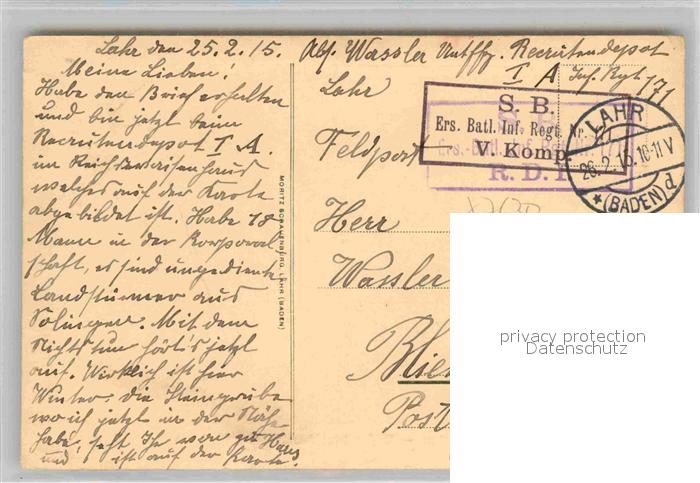 Lahr den 25.2.15.
Meine Lieben!
Habe den Brief erhalten
und bin jetzt beim
Recrutendepot I A.
im Reichswaisenhaus
welches auf der Karte
abgebildet ist. Habe 18
Mann in der Korporal
schaft, es sind ungediente
Landstürmer aus
Solingen. Mit dem
Nichtstun hört's jetzt
auf. Wirklich ist hier
Winter. die Steingrube
wo ich jetzt in der Nähe
habe, seht Ihr von
und ist auf der Karte.
MORITZ SCHAUENBURG, LAHR (BADEN)
Abs. Wassler Untffz. Recrutendepot
I A Inf. Regt. 171
Lahr
S. B.
Ers. Batl. Inf. Regt. Nr. 171
V. Komp.
R. D. I
LAHR
26.2.15.10-11 V
* (BADEN) d
Feldpost
Herr
Wassler
Blies
Post
privacy protection
Datenschutz